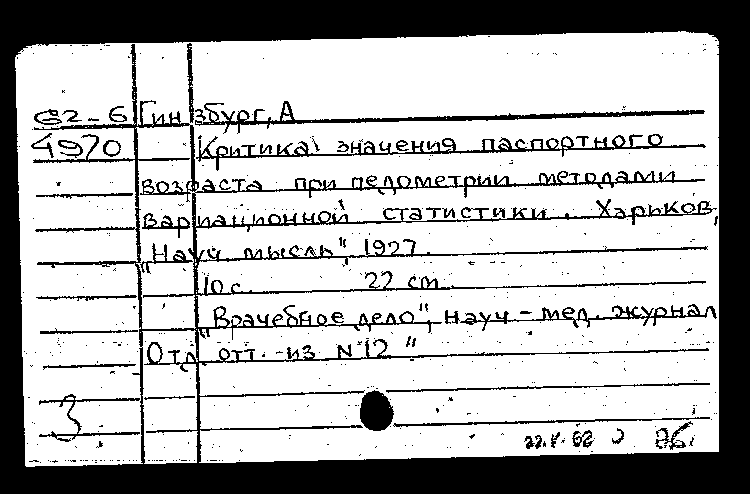 82-6 Гинзбург, А
4970 Критика значения паспортного
возраста при педометрии методами
вариационной статистики. Харьков,
„Науч. мысль", 1927.
10 с. 22 cm.
„Врачебное дело", науч-мед. журнал
Отд. отт. из N 12 "
3
22.V.62